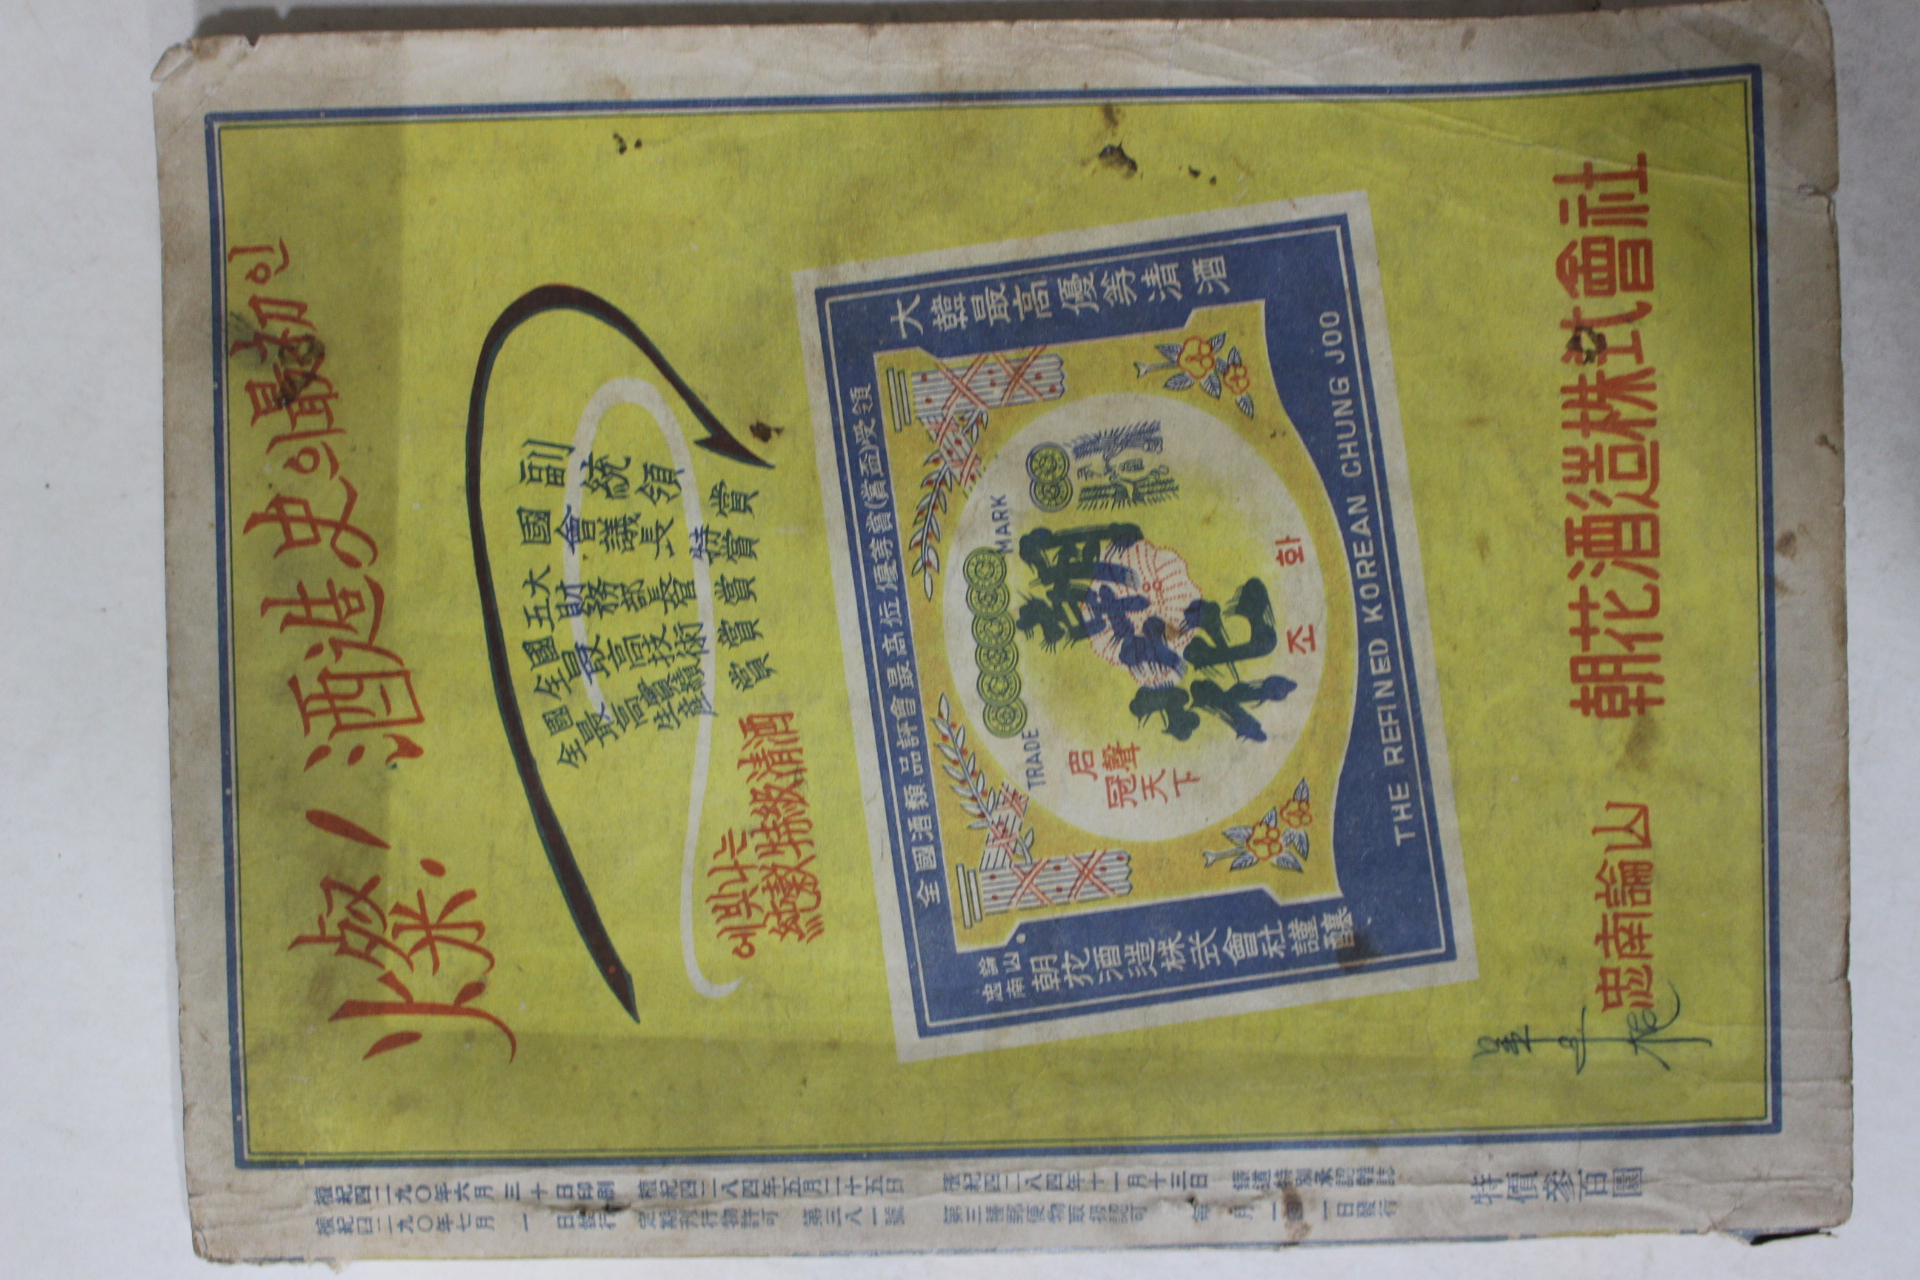 燦! 酒造史의 最初인
副統領賞
國會議長特賞
全國五大財務部長賞
全國最高技術賞
全國最高
에빛나는
純穀特級清酒
大韓最高優等清酒
全國酒類品評會最高位優等賞(賞盃)受領
TRADE MARK
朝花
名聲
冠天下
조화
THE REFINED KOREAN CHUNG JOO
忠南論山
朝花酒造株式會社謹釀
忠南論山 朝花酒造株式會社
檀紀四二九〇年六月三十日印刷 檀紀四二八四年五月二十五日 檀紀四二八四年十一月十三日
檀紀四二九〇年七月一日發行 定期刊行物許可 第三八一號 第三種郵便物認可 每月一回一日發行
特價參百圜